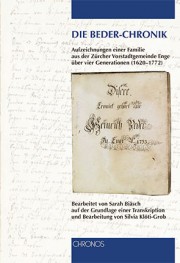 DIE BEDER-CHRONIK
Aufzeichnungen einer Familie
aus der Zürcher Vorstadtgemeinde Enge
über vier Generationen (1620–1772)
Heinrich
Bearbeitet von Sarah Bläsch
auf der Grundlage einer Transkription
und Bearbeitung von Silvia Klöti-Grob
CHRONOS